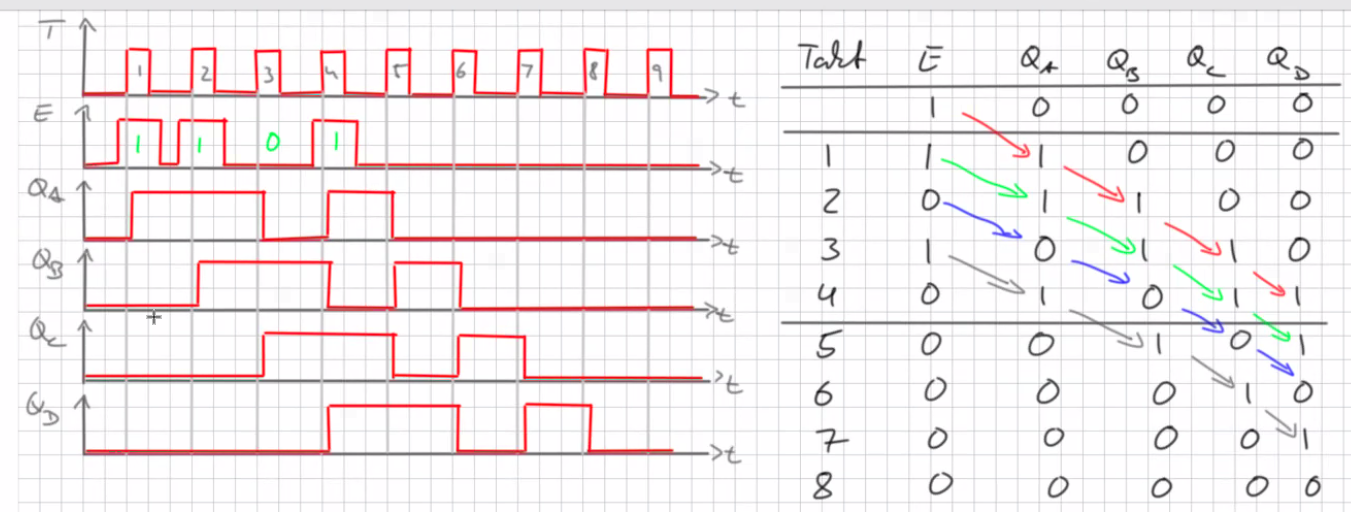 T 1 2 3 4 5 6 7 8 9 t
E 1 1 0 1 t
QA t
QB t
QC t
QD t
Takt E QA QB QC QD
1 0 0 0 0
1 1 1 0 0 0
2 0 1 1 0 0
3 1 0 1 1 0
4 0 1 0 1 1
5 0 0 1 0 1
6 0 0 0 1 0
7 0 0 0 0 1
8 0 0 0 0 0